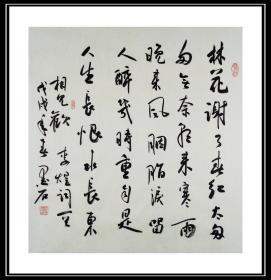 林花謝了春红太匆
匆无奈朝来寒雨
晚来风胭脂淚留
人醉幾时重自是
人生長恨水長東
相见歡 李煜词
戊戌年春 墨石